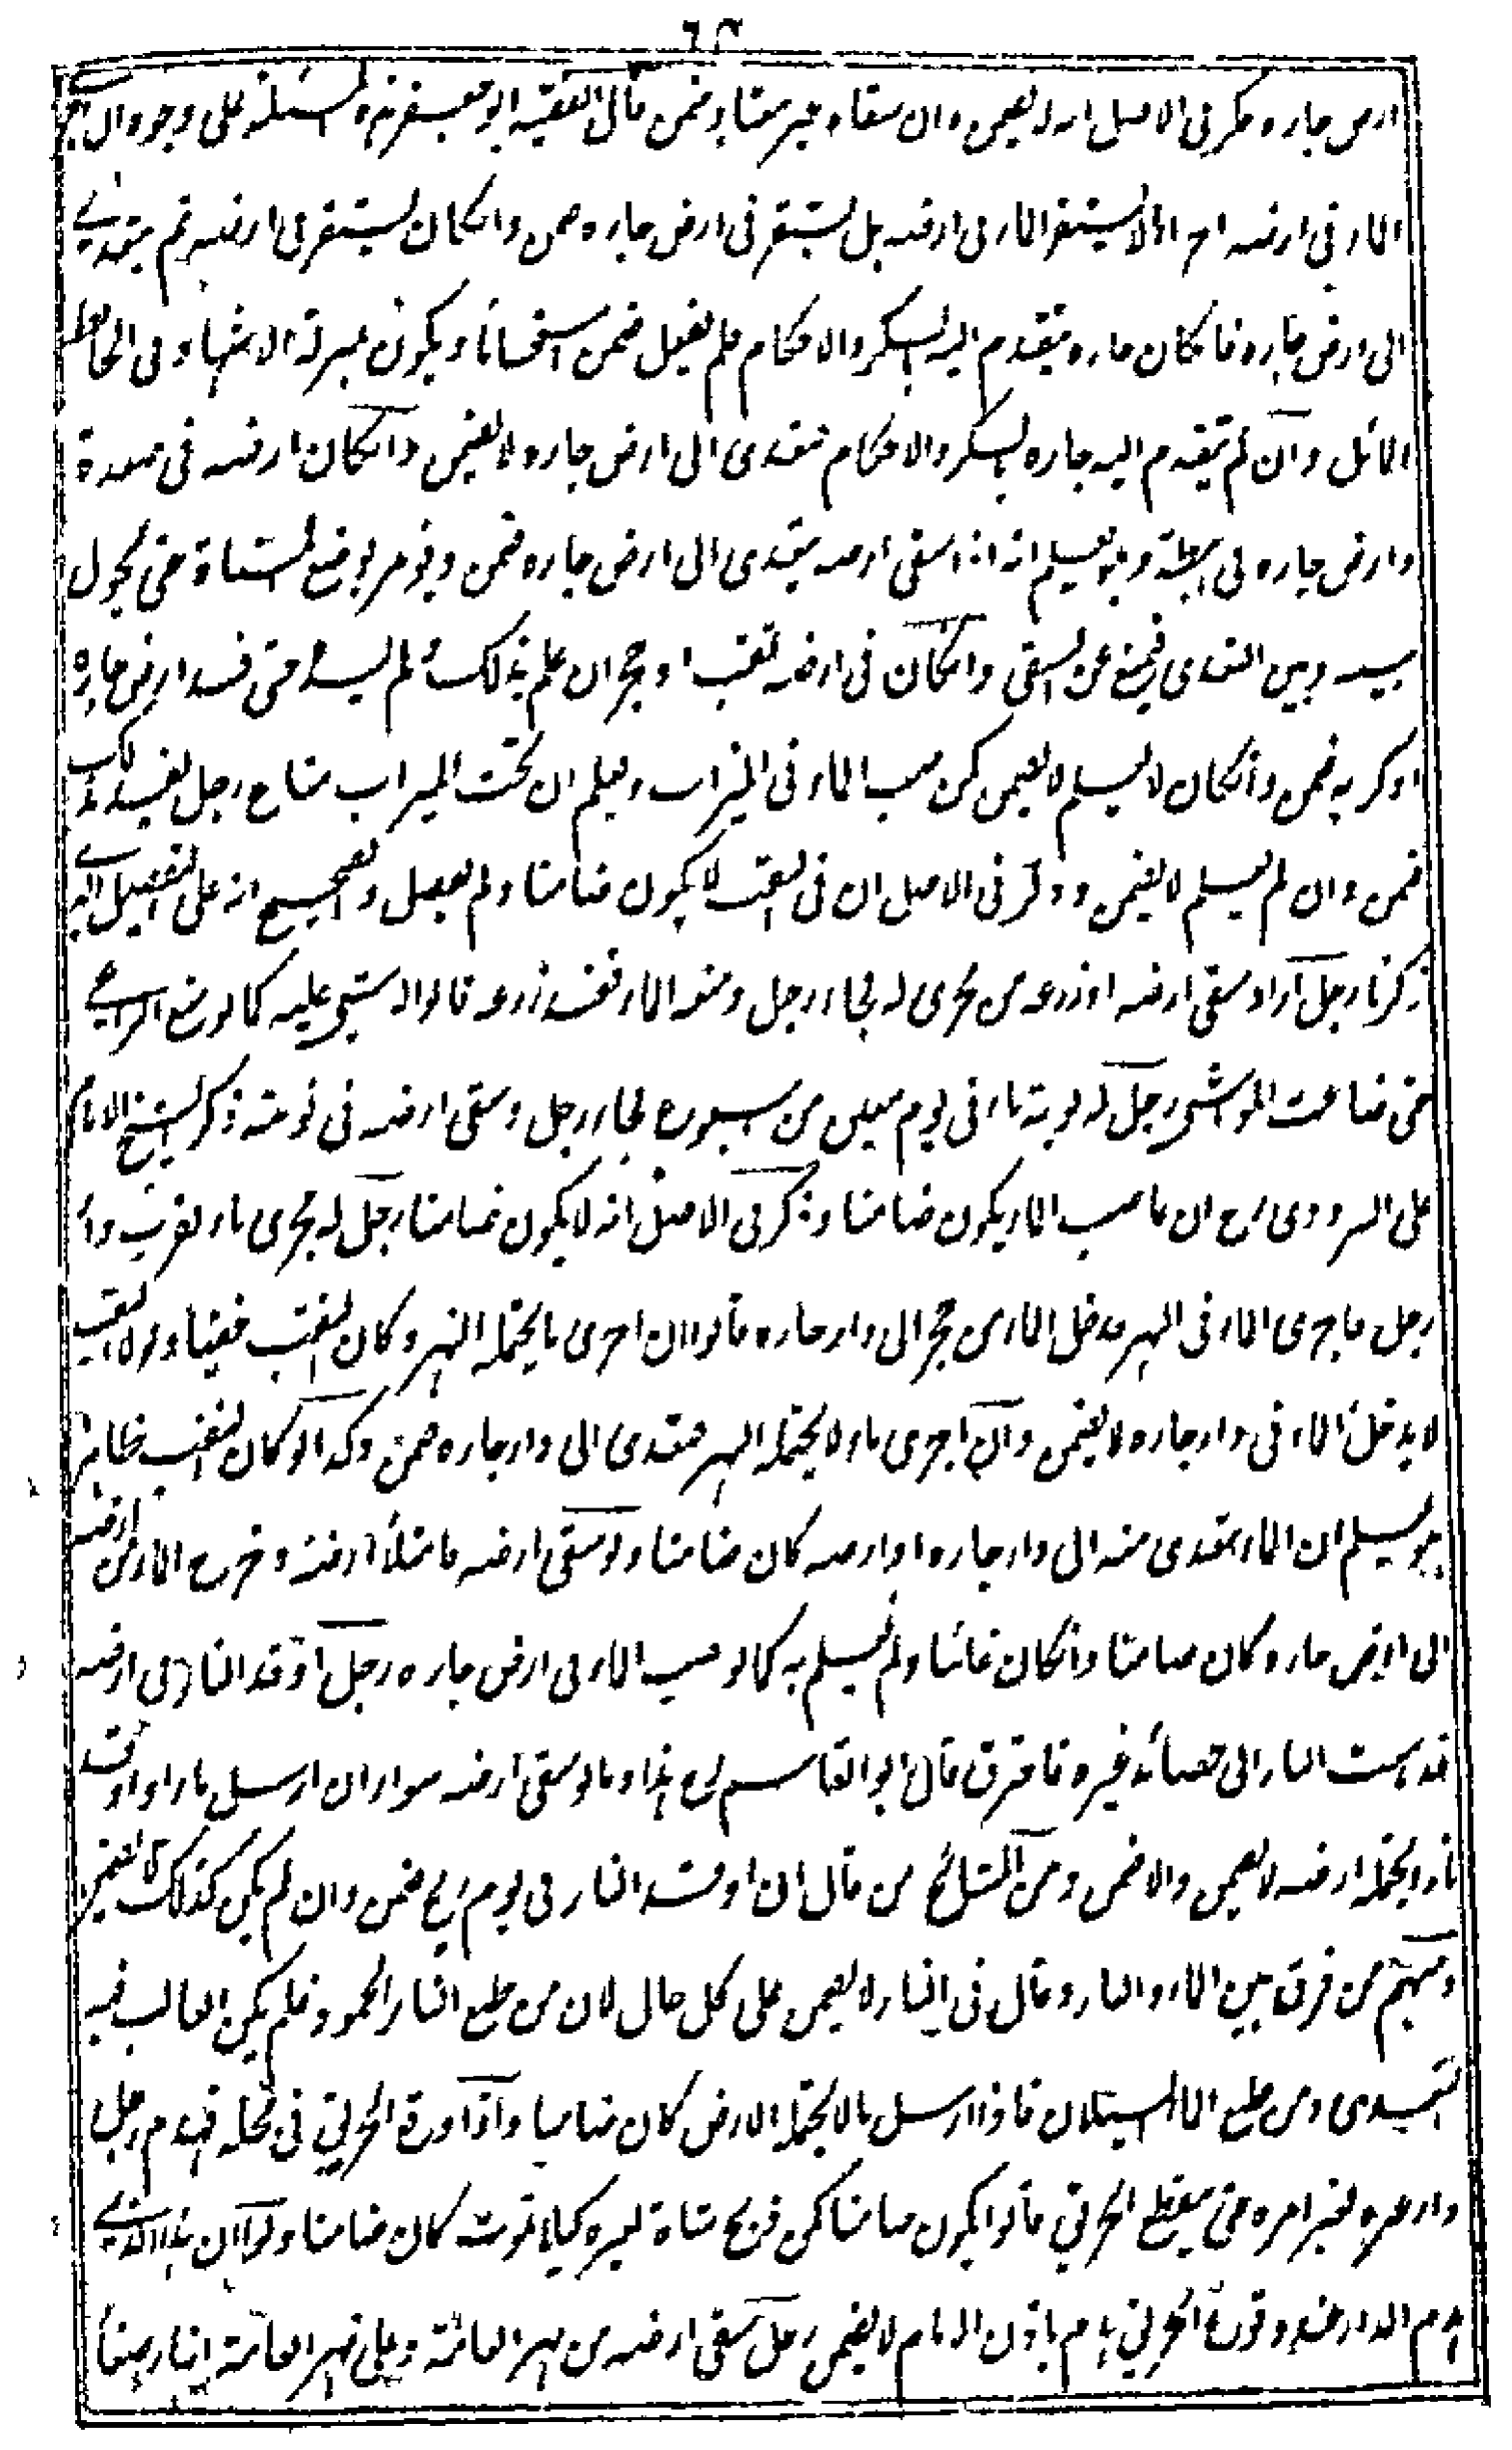 ارض جاره ذكر في الاصل انه لا يضمن وان سقاه غير معتاد ضمن قال الفقيه ابو جعفر هذه المسئلة على وجوه ان اجرى
الماء في ارضه اجراء لا يستقر الماء في ارضه بل يستقر في ارض جاره ضمن وانكان يستقر في ارضه ثم يتعدى
الى ارض جاره فان كان جاره تقدم اليه بالسكر والاحكام فلم يفعل ضمن استحسانا ويكون بمنزلة الاشهاد في الحائط
المائل وان لم يتقدم اليه جاره بالسكر والاحكام فتعدى الى ارض جاره لا يضمن وانكان ارضه في صعدة
وارض جاره في هبطة وهو يعلم انه اذا سقى ارضه يتعدى الى ارض جاره ضمن ويؤمر بوضع المسناة حتى يحول
بينه وبين التعدي فيمنع عن السقي وانكان في ارضه ثقب او جحر ان علم بذلك ولم يسده حتى فسد ارض جاره
او كربه ضمن وانكان لا يعلم لا يضمن كمن صب الماء في الميزاب ويعلم ان تحت الميزاب متاع رجل يفسد بذلك
ضمن وان لم يعلم لا يضمن وذكر في الاصل ان في الثقب لا يكون ضامنا ولم يفصل والصحيح انه على التفصيل الذي
ذكرنا رجل اراد سقي ارضه او زرعه من مجرى له فجاء رجل ومنعه الماء ففسد زرعه قالوا لا شيء عليه كما لو منع الراعي
حتى ضاعت المواشي رجل له نوبة ماء في يوم معين من سبوع فجاء رجل وسقى ارضه في نوبته ذكر الشيخ الامام
علي السرودي رح ان غاصب الماء يكون ضامنا وذكر في الاصل انه لا يكون ضامنا رجل له مجرى ماء بقرب دار
رجل فاجرى الماء في النهر فدخل الماء من جحر الى دار جاره قالوا ان اجرى ما يحتمله النهر وكان الثقب خفيا ولولا الثقب
لا يدخل الماء في دار جاره لا يضمن وان اجرى ماء لا يحتمله النهر فتعدى الى دار جاره ضمن وكذا لو كان الثقب ظاهرا
وهو يعلم ان الماء يتعدى منه الى دار جاره او ارضه كان ضامنا ولو سقى ارضه فامتلأ ارضه وخرج الماء من ارضه
الى ارض جاره كان ضامنا وانكان غائبا ولم يعلم به كما لو صب الماء في ارض جاره رجل اوقد النار في ارضه
فذهبت النار الى حصائد غيره فاحترق قال ابو القاسم رح هذا وما لو سقى ارضه سواء ان ارسل ماء او اوقد
نارا يحتمله ارضه لا يضمن والا ضمن ومن المشائخ من قال ان اوقد النار في يوم ريح ضمن وان لم يكن كذلك لا يضمن
ومنهم من فرق بين الماء والنار وقال في النار لا يضمن على كل حال لان من طبع النار الخمود فلم يكن الغالب فيه
التعدي ومن طبع الماء السيلان فاذا ارسل ما لا يحتمله الارض كان ضامنا واذا وقع الحريق في محلة فهدم رجل
دار غيره بغير امره حتى ينقطع الحريق قالوا يكون ضامنا كمن ذبح شاة لغيره كيلا تموت كان ضامنا ولو ان هذا الذي
هدم الدار عند وقوع الحريق هدم باذن الامام لا يضمن رجل سقى ارضه من نهر العامة وعلى نهر العامة انهار صغار